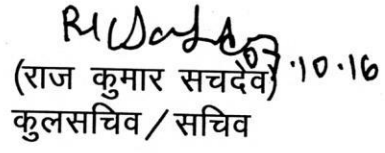 07.10.16
(राज कुमार सचदेव)
कुलसचिव / सचिव